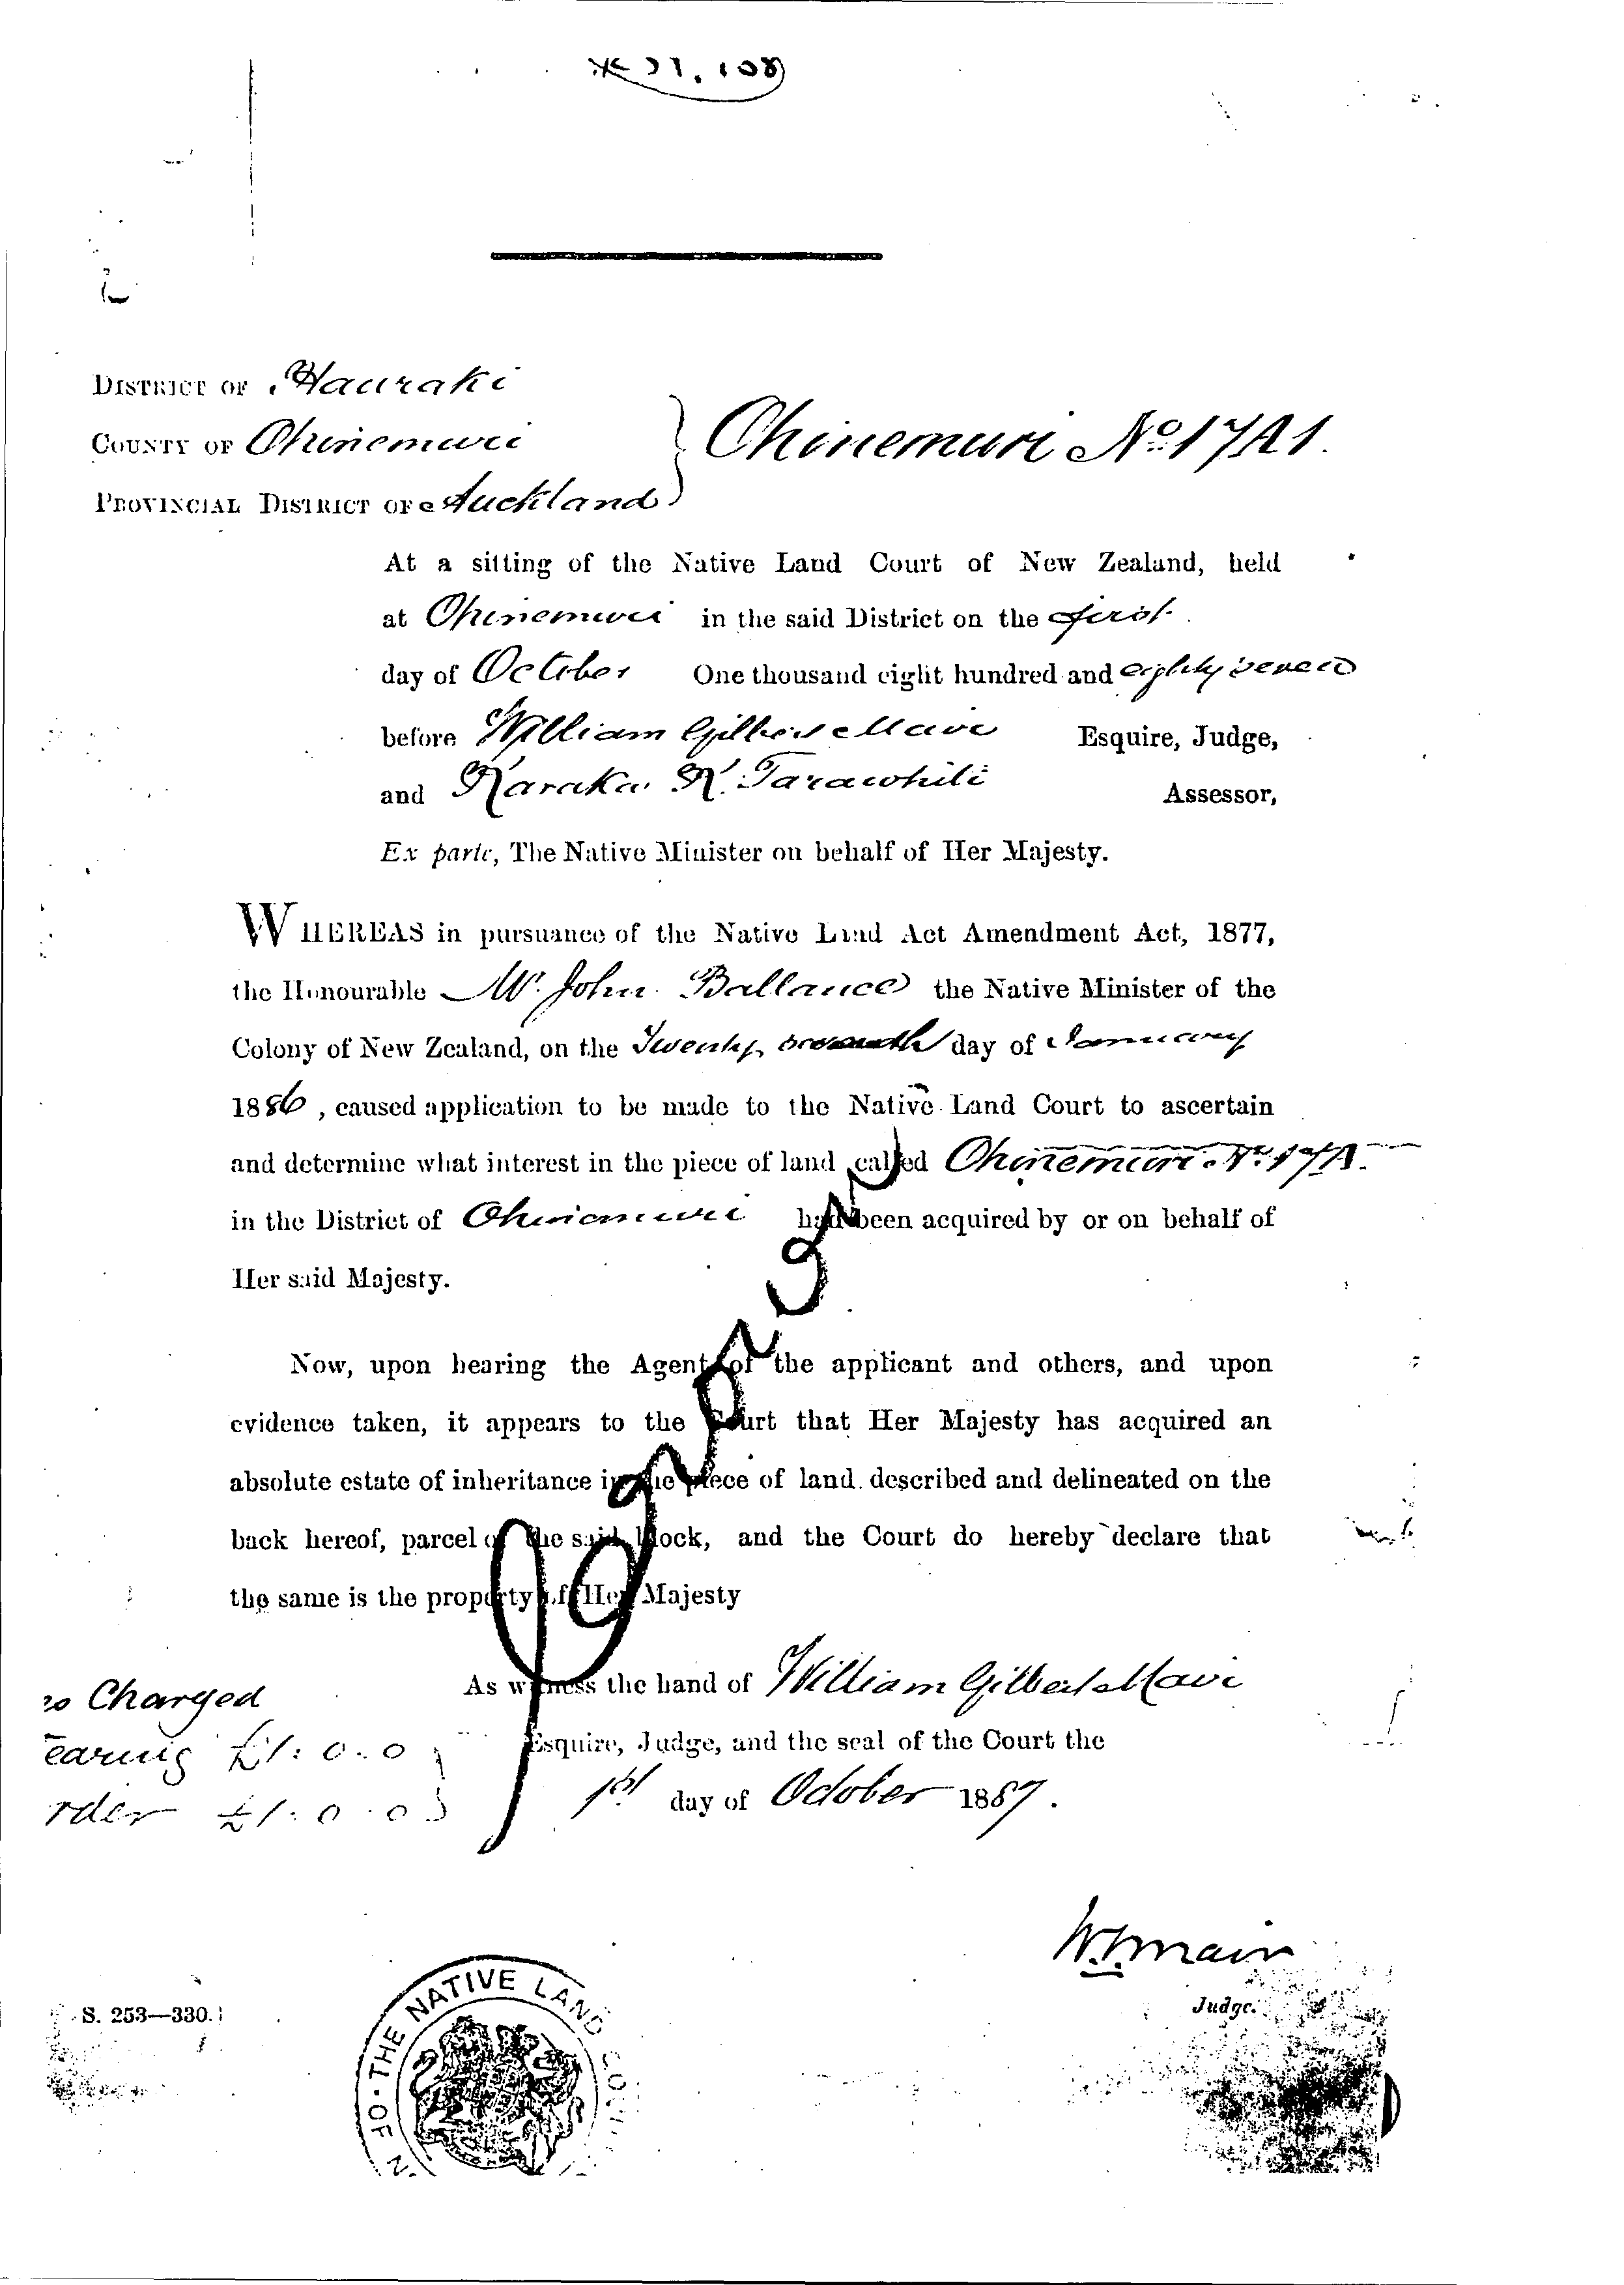 DISTRICT OF Hauraki
COUNTY OF Ohinemuri
PROVINCIAL DISTRICT OF Auckland
Ohinemuri No. 17A1.
At a sitting of the Native Land Court of New Zealand, held
at Ohinemuri in the said District on the first
day of October One thousand eight hundred and eighty seven
before William Gilbert Mair Esquire, Judge,
and Karaka Tarawhiti Assessor,
Ex parte, The Native Minister on behalf of Her Majesty.
WHEREAS in pursuance of the Native Land Act Amendment Act, 1877,
the Honourable Mr. John Ballance the Native Minister of the
Colony of New Zealand, on the Twenty seventh day of January
1886, caused application to be made to the Native Land Court to ascertain
and determine what interest in the piece of land called Ohinemuri No. 17A.
in the District of Ohinemuri had been acquired by or on behalf of
Her said Majesty.
Now, upon hearing the Agent of the applicant and others, and upon
evidence taken, it appears to the Court that Her Majesty has acquired an
absolute estate of inheritance in the piece of land described and delineated on the
back hereof, parcel of the said block, and the Court do hereby declare that
the same is the property of Her Majesty
As witness the hand of William Gilbert Mair
Charged
earing £1:0.0
Esquire, Judge, and the seal of the Court the
rder £1.0.0
1st day of October 1887.
W.G. Mair
Judge.
S. 253—330.
OF THE NATIVE LAND